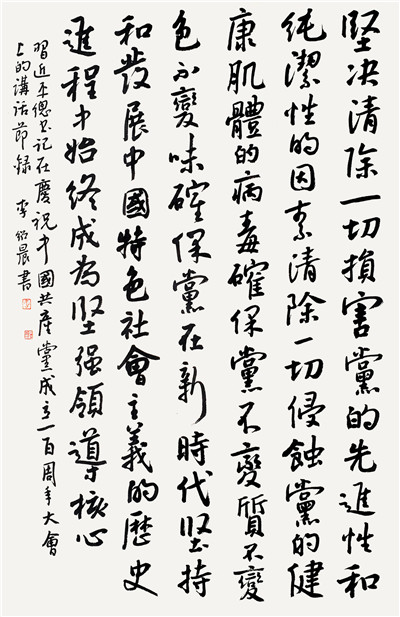 堅决清除一切損害黨的先進性和
純潔性的因素清除一切侵蝕黨的健
康肌體的病毒確保黨不變質不變
色不變味確保黨在新時代堅持
和發展中國特色社會主義的歷史
進程中始終成為堅强領導核心
習近平總書記在慶祝中國共產黨成立一百周年大會
上的講話節録 李晨書